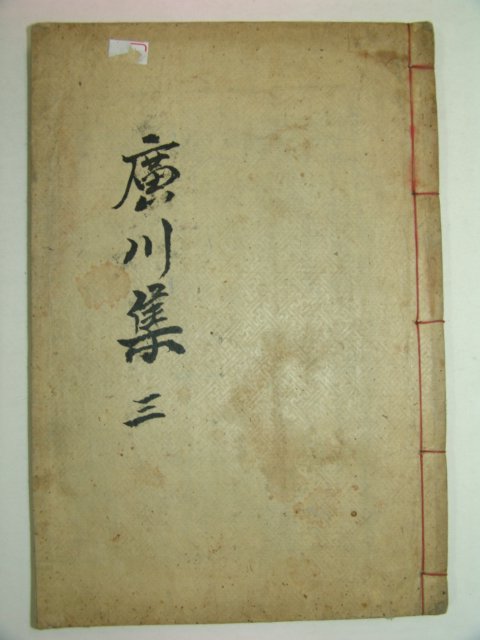 廣川集 三